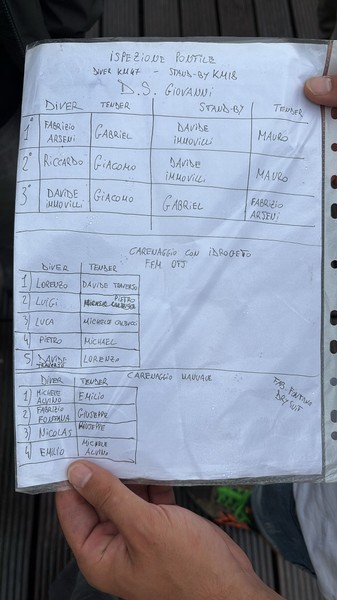 ISPEZIONE PONTILE
DIVER KM47 - STAND-BY KM18
D.S. GIOVANNI
DIVER TENDER STAND-BY TENDER
1° FABRIZIO ARSENI GABRIEL DAVIDE IMMOVILLI MAURO
2° RICCARDO GIACOMO DAVIDE IMMOVILLI MAURO
3° DAVIDE IMMOVILLI GIACOMO GABRIEL FABRIZIO ARSENI
CARENAGGIO CON IDROGETTO
DIVER TENDER FFM OTS
1) LORENZO DAVIDE TRAVERSO
2) LUIGI PIETRO
3) LUCA MICHELE
4) PIETRO MICHAEL
5) DAVIDE TRAVERSO LORENZO
CARENAGGIO MANUALE
DIVER TENDER
1) MICHELE ALVINO EMILIO
2) FABRIZIO FONTANA GIUSEPPE
3) NICOLAS GIUSEPPE
4 EMILIO MICHELE ALVINO
FAB. FONTANA
DRY SUIT